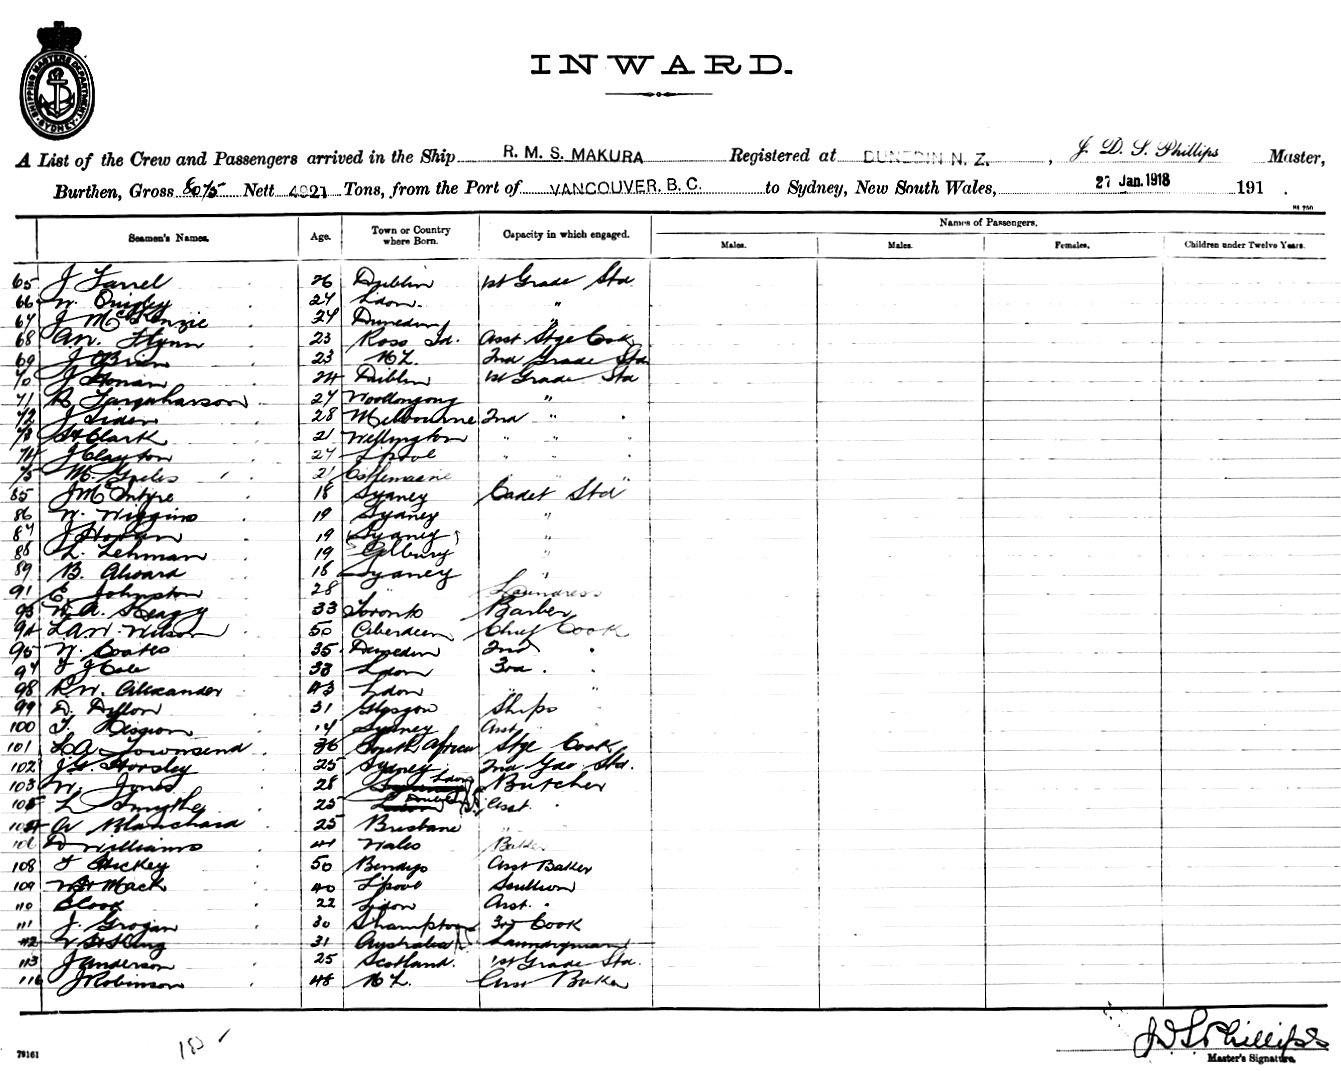 SHIPPING MASTERS DEPARTMENT SYDNEY
INWARD.
A List of the Crew and Passengers arrived in the Ship R. M. S. MAKURA Registered at DUNEDIN N. Z., J. D. S. Phillips Master,
Burthen, Gross 8075 Nett 4921 Tons, from the Port of VANCOUVER, B. C. to Sydney, New South Wales, 27 Jan. 1918 191 .
Names of Passengers.
Seamen's Names. Age. Town or Country where Born. Capacity in which engaged. Males. Males. Females. Children under Twelve Years.
65 J Farrel 26 Dublin 1st Grade Std
66 W. Quigley 24 Ldon. "
67 J McKenzie 24 Dunedin "
68 W. Flynn 23 Ross Id. Asst Stge Cook
69 J OBrien 23 NZ. 2nd Grade Std
70 J Honan 24 Dublin 1st Grade Std
71 Farquharson 27 Woollongong "
72 J 28 Melbourne 2nd " "
73 Clark 21 Wellington " " "
74 J Clayton 24 Lpool " " "
75 M. 21 Castlemaine " "
85 J McIntyre 18 Sydney Cadet Std
86 W. Wiggins 19 Sydney "
87 J Horan 19 Sydney "
88 L. Lehman 19 "
89 B. Alward 18 Sydney "
91 E. Johnston 28 " Laundress
93 W. A. 33 Toronto Barber
94 Wilson 50 Aberdeen Chief Cook
95 W. Coates 35 Dunedin 2nd "
97 J Cole 33 Ldon 3rd . "
98 R. W. Alexander 43 Ldon " "
99 D. Dillon 31 Glasgow Ships "
100 T. 17 Sydney Asst "
101 Townsend 36 South Africa Stge Cook
102 J. Horsley 25 Sydney 2nd Gde Std.
103 W. Jones 28 Ldon Butcher
105 L Smythe 25 Dublin Asst. "
104 A Blanchard 25 Brisbane "
106 D Williams 41 Wales Baker
108 J Hickey 50 Bendigo Asst Baker
109 W Mack 40 Lpool Scullion
110 Cook 22 Ldon Asst. "
111 J. Grogan 30 Shampton 3rd Cook
112 King 31 Australia Laundryman
113 J Anderson 25 Scotland. 1st Grade Std.
116 J Robinson 48 NZ. Asst Baker
79161
J D S Phillips
Master's Signature.